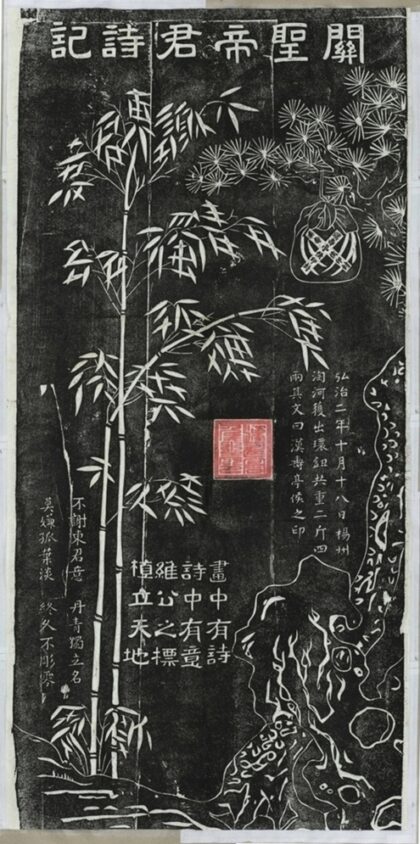 關聖帝君詩記
弘治二年十月十八日楊州
淘河獲出環紐共重二斤四
兩其文曰漢壽亭侯之印
畫中有詩
詩中有意
維公之標
植立天地
不謝東君意 丹青獨立名
莫嫌孤葉淡 終久不彫零